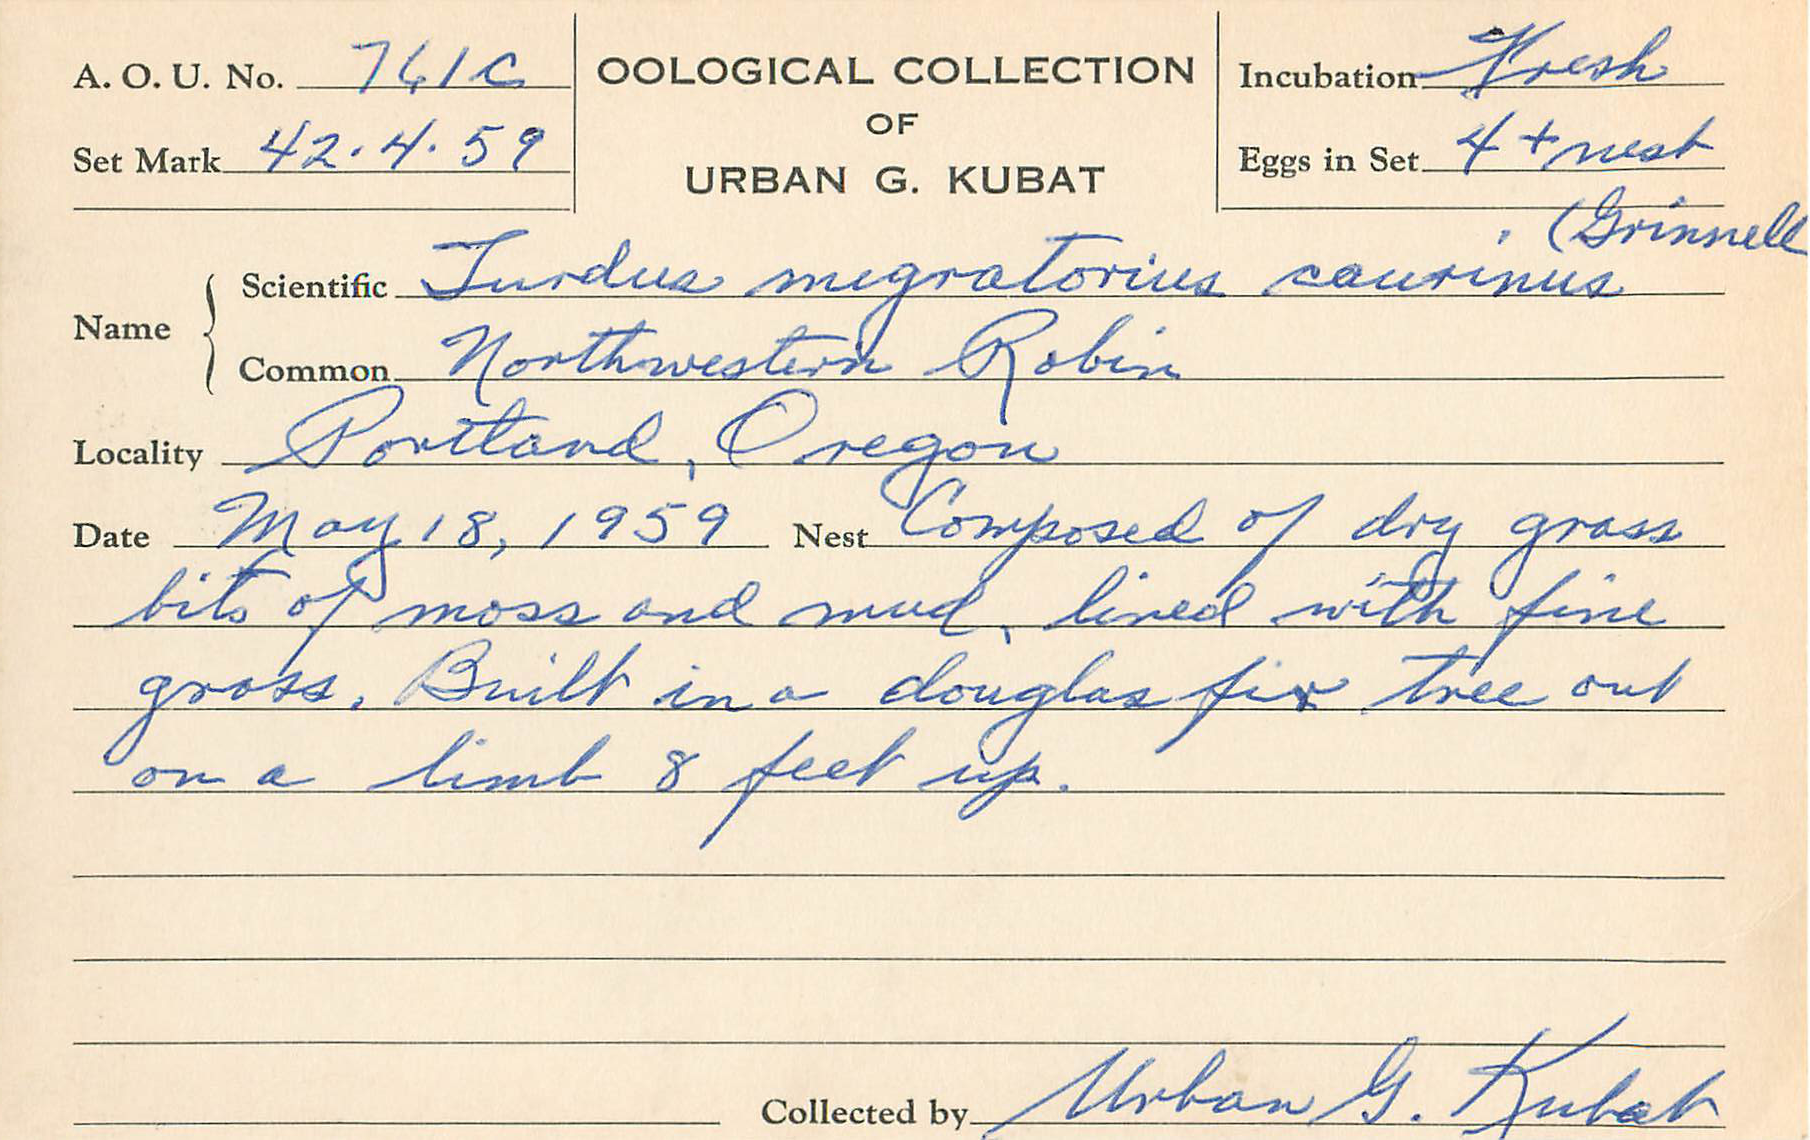 A. O. U. No. 761c
Set Mark 42.4.59
OOLOGICAL COLLECTION
OF
URBAN G. KUBAT
Incubation Fresh
Eggs in Set 4 + nest
(Grinnell
Name
Scientific Turdus migratorius caurinus
Common Northwestern Robin
Locality Portland, Oregon
Date May 18, 1959 Nest Composed of dry grass
bits of moss and mud, lined with fine
grass. Built in a douglas fir tree out
on a limb 8 feet up.
Collected by Urban G. Kubat